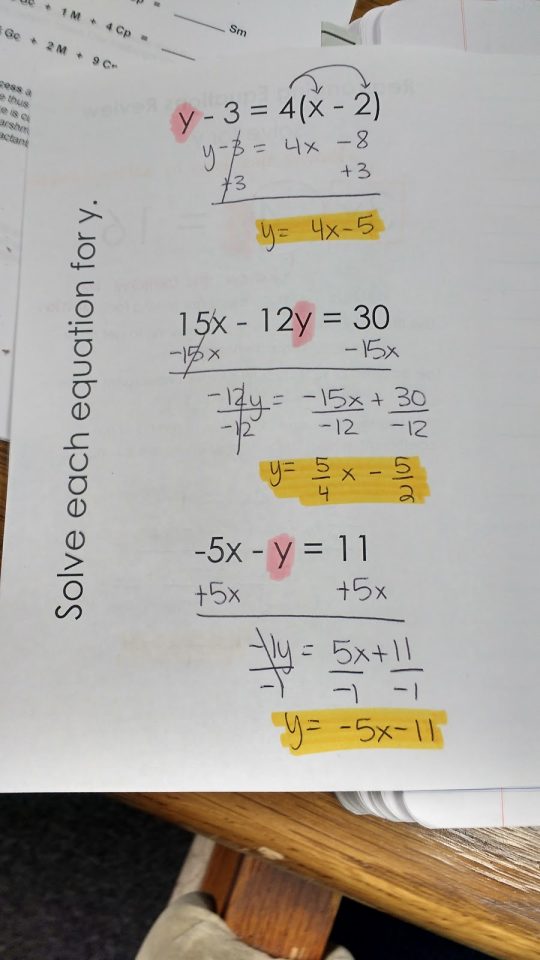 + 1 M + 4 Cp = ____ Sm
Gc + 2 M + 9
Solve each equation for y.
y - 3 = 4(x - 2)
y-3 = 4x -8
+3 +3
y= 4x-5
15x - 12y = 30
-15x -15x
-12y = -15x + 30
-12 -12 -12
y= 5/4 x - 5/2
-5x - y = 11
+5x +5x
-1y = 5x+11
-1 -1 -1
y= -5x-11